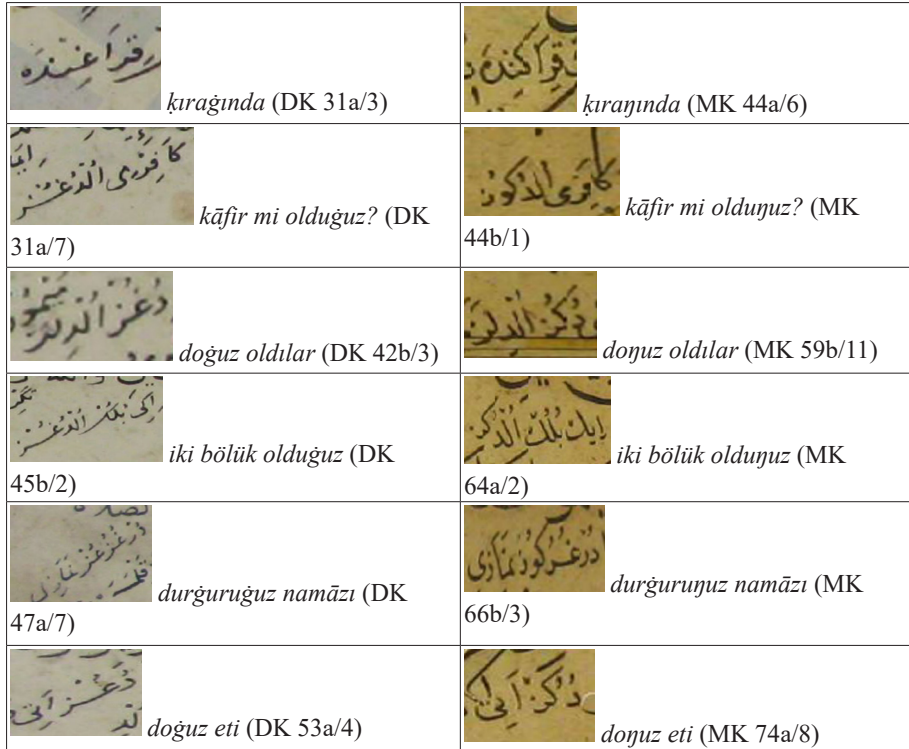 قراغنده ḳıraġında (DK 31a/3)
قراكنده ḳıraŋında (MK 44a/6)
kāfir mi olduġuz? (DK
31a/7)
kāfir mi olduŋuz? (MK
44b/1)
دغز الدلر doġuz oldılar (DK 42b/3)
دكز الدلر doŋuz oldılar (MK 59b/11)
iki bölük olduġuz (DK
45b/2)
iki bölük olduŋuz (MK
64a/2)
durġuruġuz namāzı (DK
47a/7)
درغركوز نمازى durġuruŋuz namāzı (MK
66b/3)
دغز اتى doġuz eti (DK 53a/4)
دكز اتى doŋuz eti (MK 74a/8)